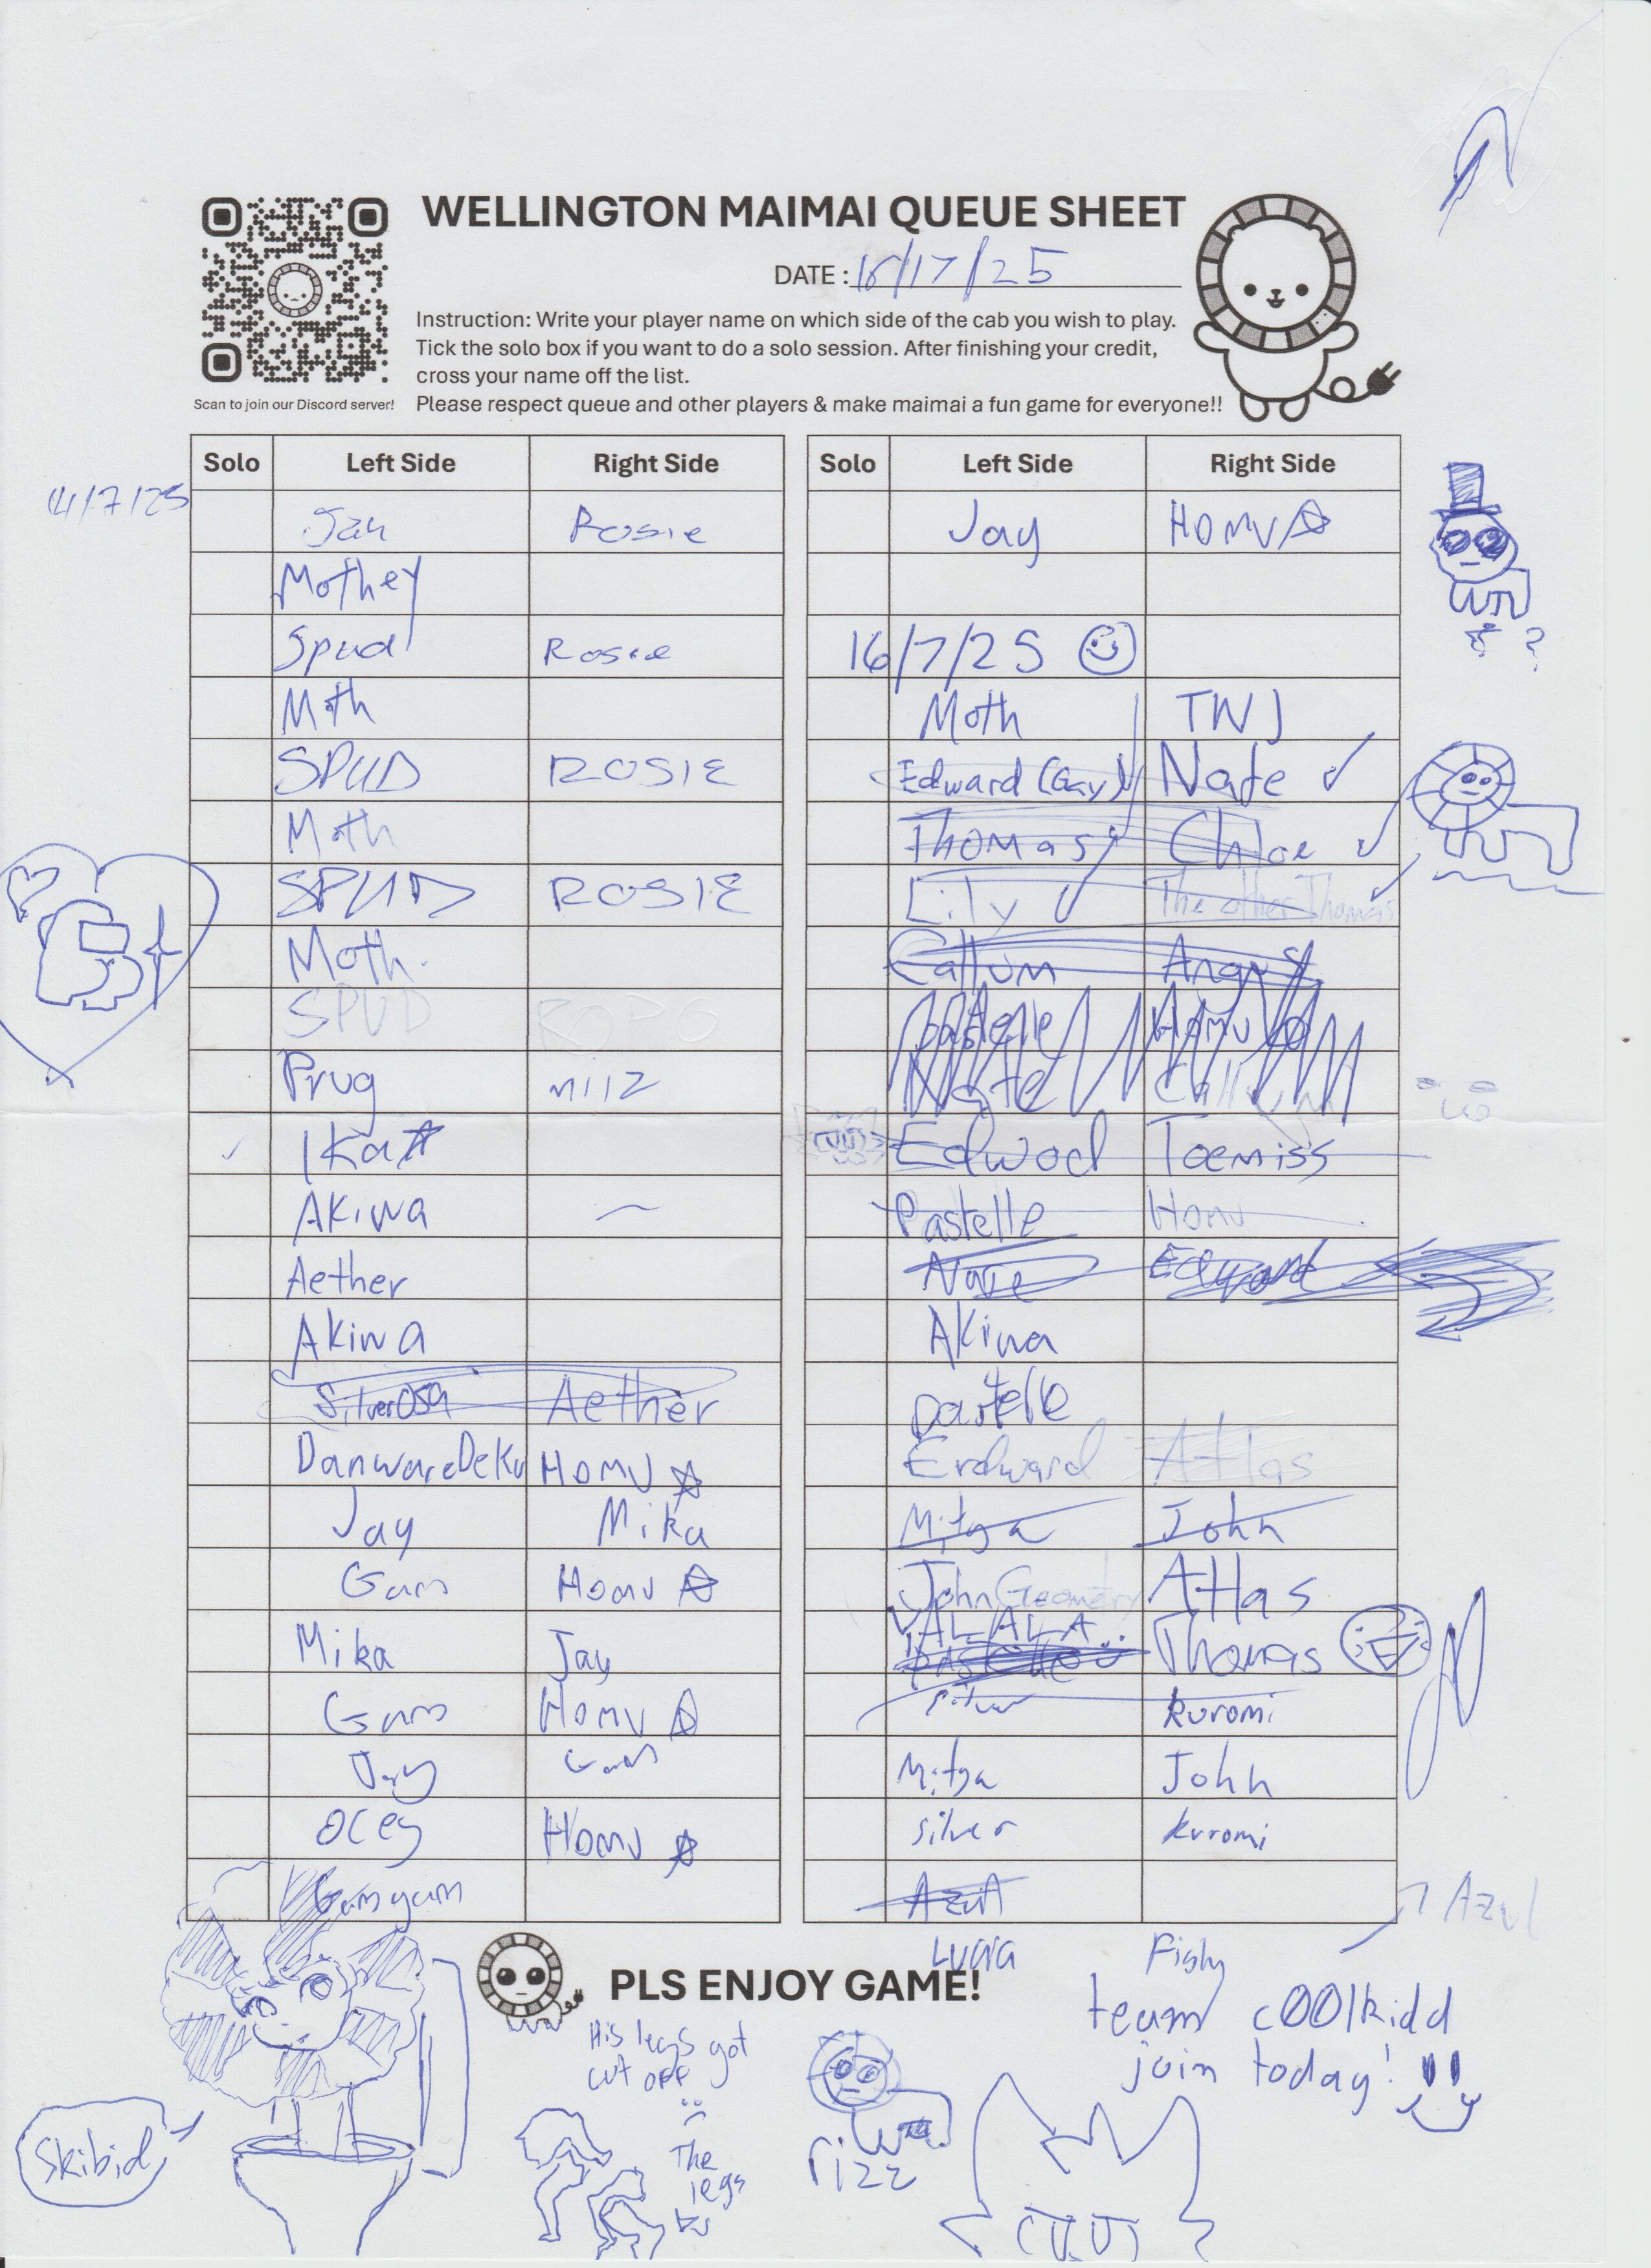 WELLINGTON MAIMAI QUEUE SHEET
DATE: 16/17/25
Instruction: Write your player name on which side of the cab you wish to play.
Tick the solo box if you want to do a solo session. After finishing your credit,
cross your name off the list.
Please respect queue and other players & make maimai a fun game for everyone!!
Scan to join our Discord server!
Solo Left Side Right Side
14/7/25
Jay Rosie
Mothey
Spud Rosie
Moth
SPUD ROSIE
Moth
SPUD ROSIE
Moth.
SPUD
Prug
Ika☆
Akiwa ~
Aether
Akiwa
Silver059 Aether
DanwareDeku HOMU ☆
Jay Mika
Gum Homu ☆
Mika Jay
Gum Homu ☆
Jay Gum
Ocey Homu ☆
Gumyum
Solo Left Side Right Side
Jay HOMU☆
16/7/25 ☺
Moth TWJ
Edward (Gay) Nate ✓
Thomas ✓ Chloe ✓
Lily ✓ The other Thomas ✓
Callum Angus
Pastelle Homu
Nate Callum
Edwod Toemiss
Pastelle Homu
Nate Edward
Akiwa
pastelle
Erdward Atlas
Mitya John
John Geometry Atlas
VALALA..
pastelle Thomas
silver kuromi
Mitya John
silver kuromi
Azul
Azul
Lucia Fishy
PLS ENJOY GAME!
team c00lkidd
join today!
His legs got
cut off
The
legs
rizz
Skibidi
?